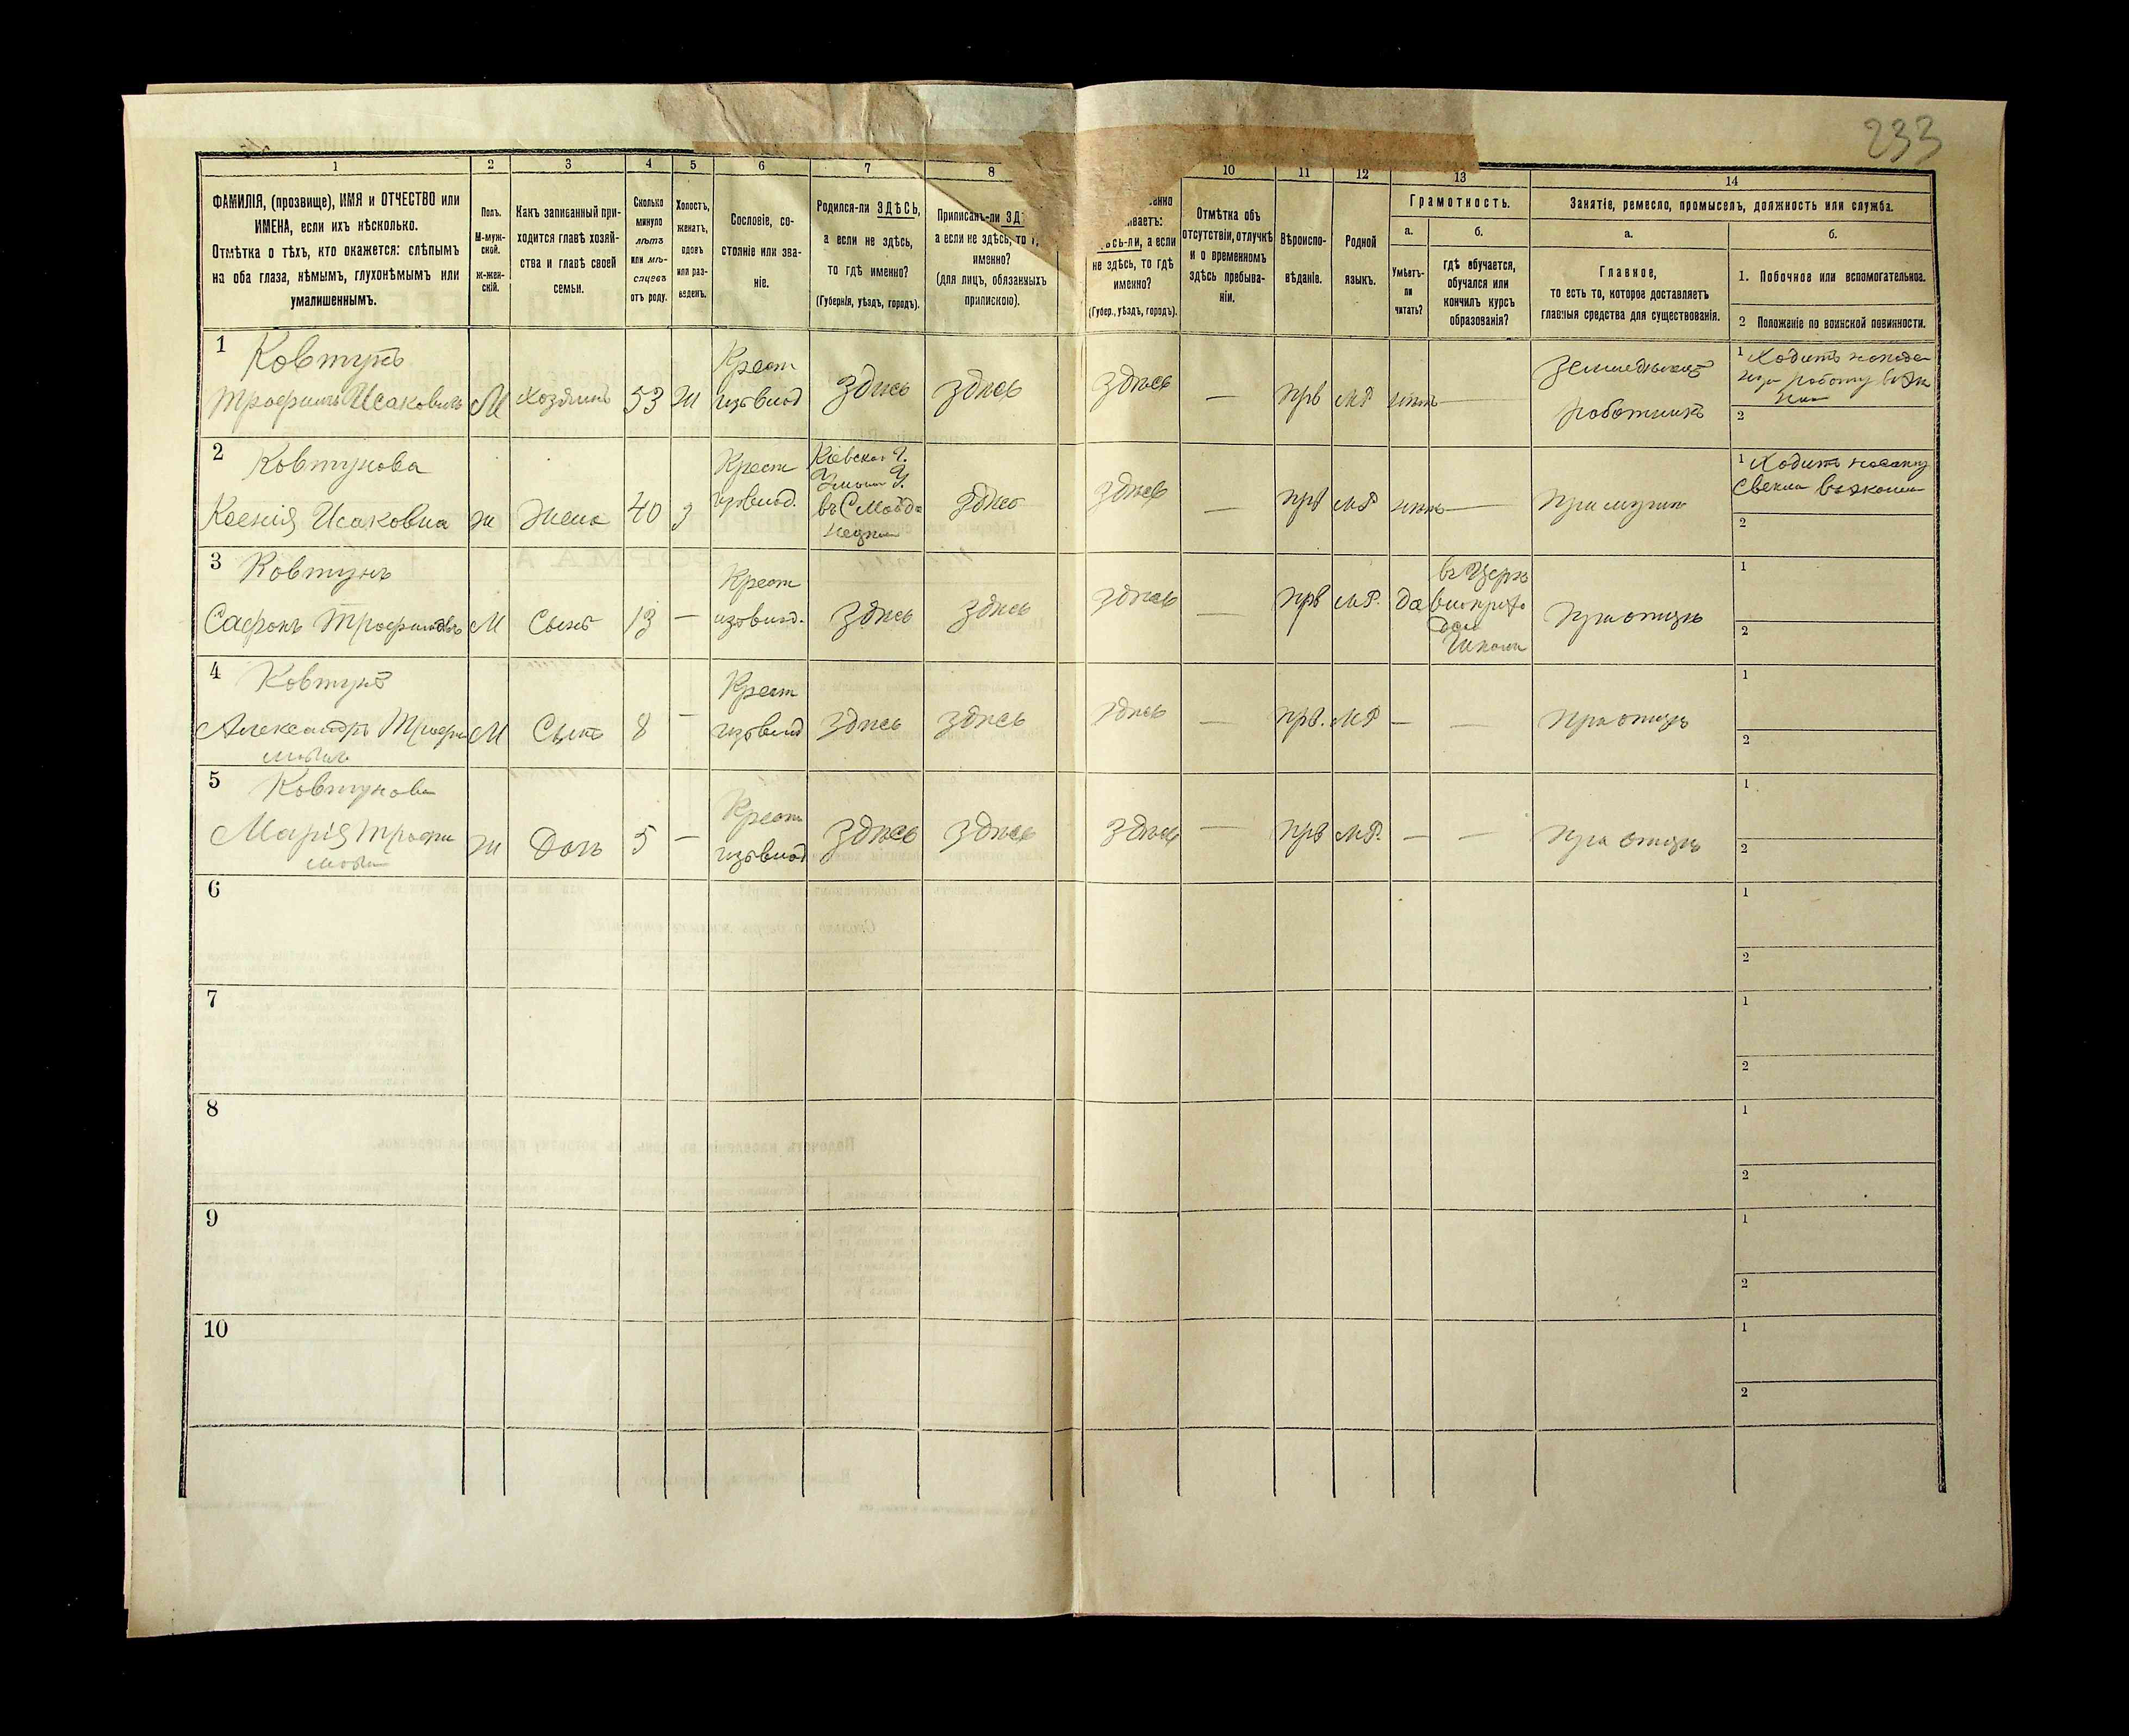 233
1
2
3
4
5
6
7
8
10
11
12
13
14
ФАМИЛІЯ, (прозвище), ИМЯ и ОТЧЕСТВО или
ИМЕНА, если ихъ нѣсколько.
Отмѣтка о тѣхъ, кто окажется: слѣпымъ
на оба глаза, нѣмымъ, глухонѣмымъ или
умалишеннымъ.
Полъ.
М-муж-
ской.
Ж-жен-
скій.
Какъ записанный при-
ходится главѣ хозяй-
ства и главѣ своей
семьи.
Сколько
минуло
лѣтъ
или мѣ-
сяцевъ
отъ роду.
Холостъ,
женатъ,
вдовъ
или раз-
веденъ.
Сословіе, со-
стояніе или зва-
ніе.
Родился-ли ЗДѢСЬ,
а если не здѣсь,
то гдѣ именно?
(Губернія, уѣздъ, городъ).
Приписанъ-ли
а если не здѣсь, то
именно?
(для лицъ, обязанныхъ
припискою).
а если
не здѣсь, то гдѣ
именно?
(Губер., уѣздъ, городъ).
Отмѣтка объ
отсутствіи, отлучкѣ
и о временномъ
здѣсь пребыва-
ніи.
Вѣроиспо-
вѣданіе.
Родной
языкъ.
Грамотность.
а.
Умѣетъ-
ли
читать?
б.
гдѣ обучается,
обучался или
кончилъ курсъ
образованія?
Занятіе, ремесло, промыселъ, должность или служба.
а.
Главное,
то есть то, которое доставляетъ
главныя средства для существованія.
б.
1. Побочное или вспомогательное.
2 Положеніе по воинской повинности.
1 Ковтунъ
Трофимъ Исаковичъ
М
Хозяинъ
53
Ж
Крест
здѣсь
здѣсь
здѣсь
—
прв
МР
нѣтъ
—
работникъ
1 Ходитъ
работу
2
2 Ковтунова
Ксенія Исаковна
ж
Жена
40
з
Крест
Кіевская Г.
здѣсь
здѣсь
—
прв
МР
нѣтъ
—
При мужи
1 Ходитъ
2
3 Ковтунъ
Сафонъ Трофимовъ
М
Сынъ
13
—
Крест
здѣсь
здѣсь
здѣсь
—
прв
МР.
да
въ Церк
Школи
При отцѣ
1
2
4 Ковтунъ
Александръ Трофи
мовъ
М
Сынъ
8
—
Крест
здѣсь
здѣсь
здѣсь
—
прв.
МР
—
—
При отцѣ
1
2
5 Ковтунова
Марія Трофи
мова
ж
Дочь
5
—
Крест
здѣсь
здѣсь
здѣсь
—
прв
МР.
—
—
При отцѣ
1
2
6
1
2
7
1
2
8
1
2
9
1
2
10
1
2